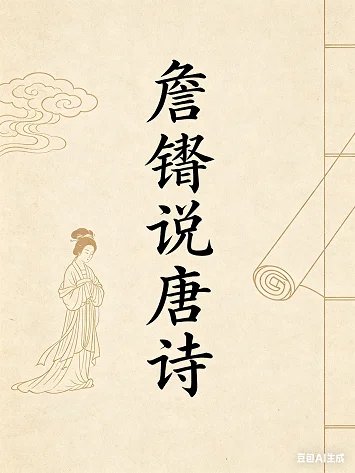 詹说唐诗
豆包AI生成